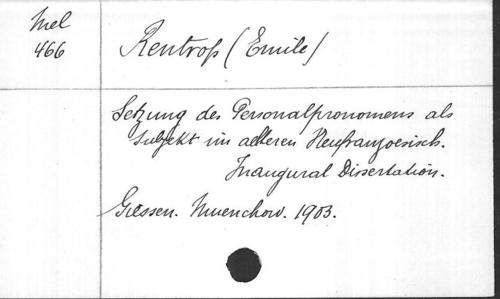 Mel
466
Rentrop (Emile)
Setzung des Personalpronomens als
Subjekt im aelteren Neufranzoesisch.
Inaugural Dissertation.
Giessen. Muenchow. 1903.